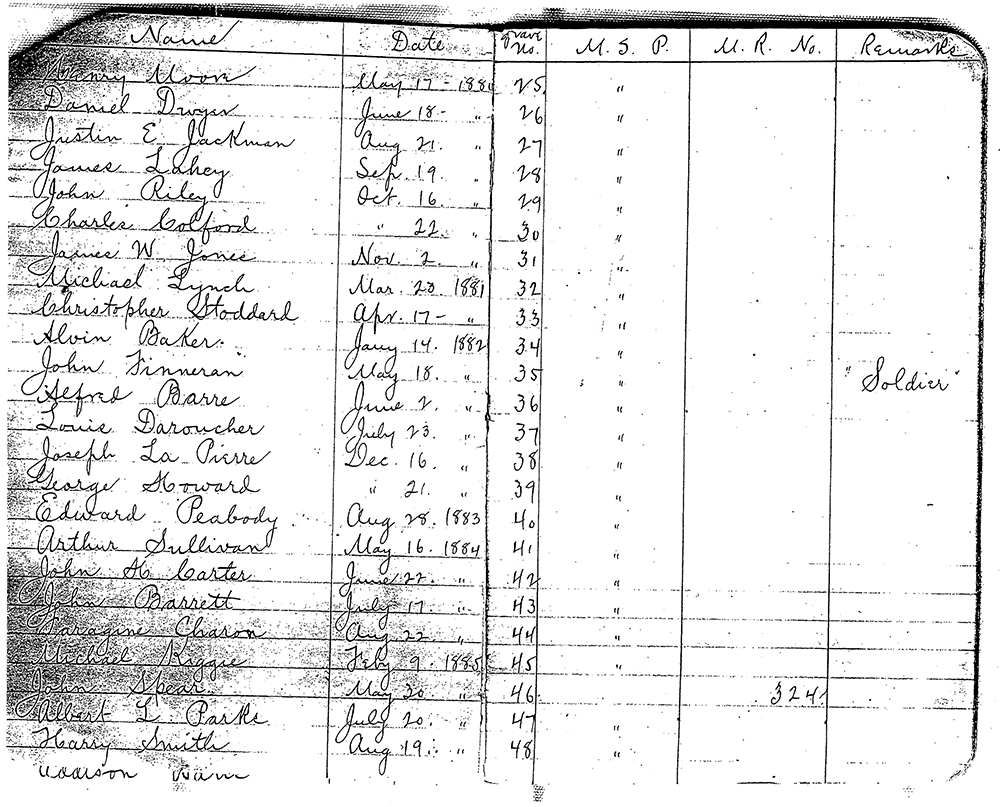 Name Date Grave No. M. S. P. M. R. No. Remarks
Henry Moore May 17 - 1880 25 "
Daniel Dwyer June 18 - " 26 "
Justin E. Jackman Aug 21. " 27 "
James Lahey Sep. 19. " 28 "
John Riley Oct. 16. " 29 "
Charles Colford " 22. " 30 "
James W. Jones Nov. 2. " 31 "
Michael Lynch Mar. 23 1881 32 "
Christopher Stoddard Apr. 17 - " 33 "
Alvin Baker. Jany 14. 1882 34 "
John Finneran May 18. " 35 " "Soldier"
Alfred Barre June 2. " 36 "
Louis Daroucher July 23. " 37 "
Joseph La Pierre Dec. 16. " 38 "
George Howard " 21. " 39 "
Edward Peabody. Aug 28. 1883 40 "
Arthur Sullivan May 16. 1884 41 "
John H. Carter June 22. " 42 "
John Barrett July 17 " 43 "
Charon Aug 22. " 44 "
Michael Kiggie Feby 9. 1885 45 "
John Spear. May 30 " 46. 324.
Albert L. Parks July 20. " 47 "
Harry Smith Aug 19. " 48 "